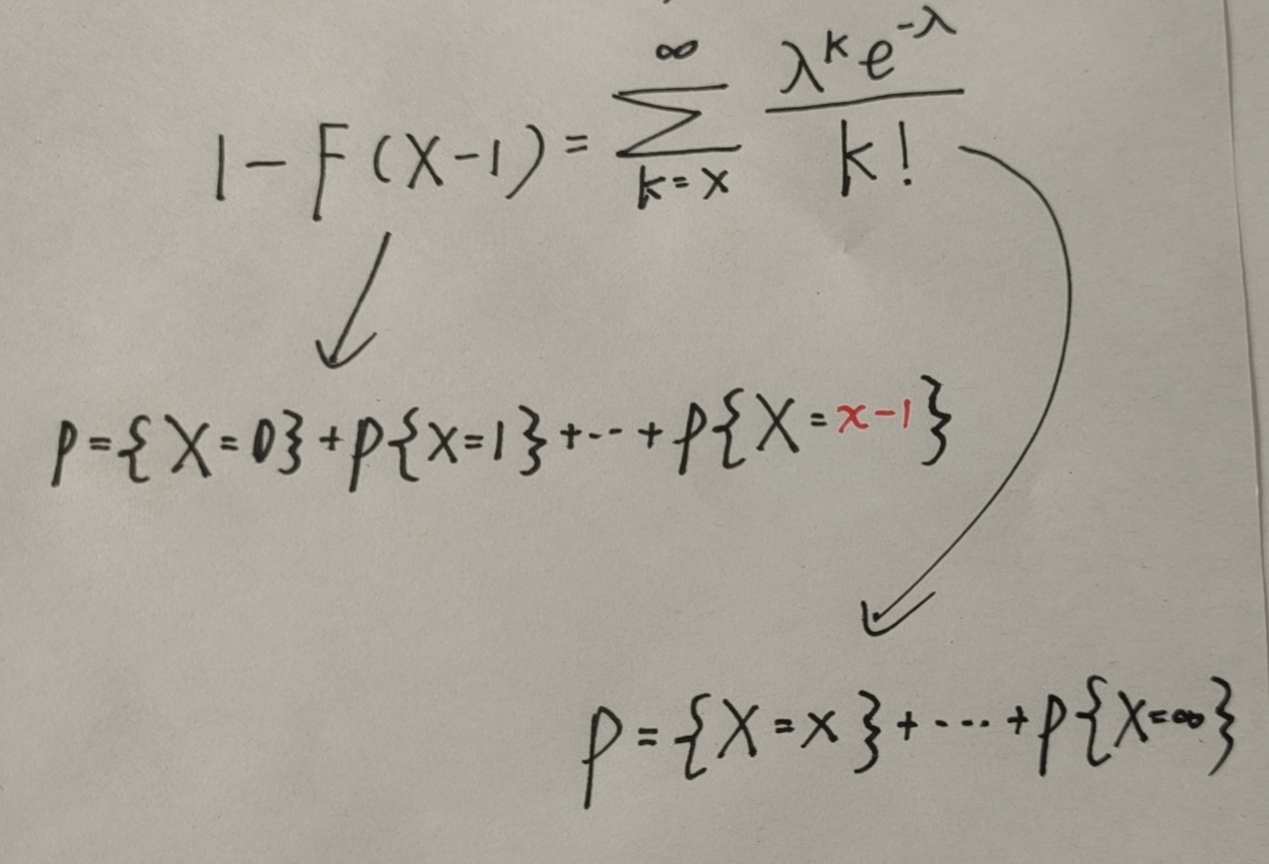 1 - F(X-1) = ∑_{k=x}^{∞} \frac{λ^k e^{-λ}}{k!}
P={X=0}+P{X=1}+···+P{X=x-1}
P={X=x}+····+P{X=∞}